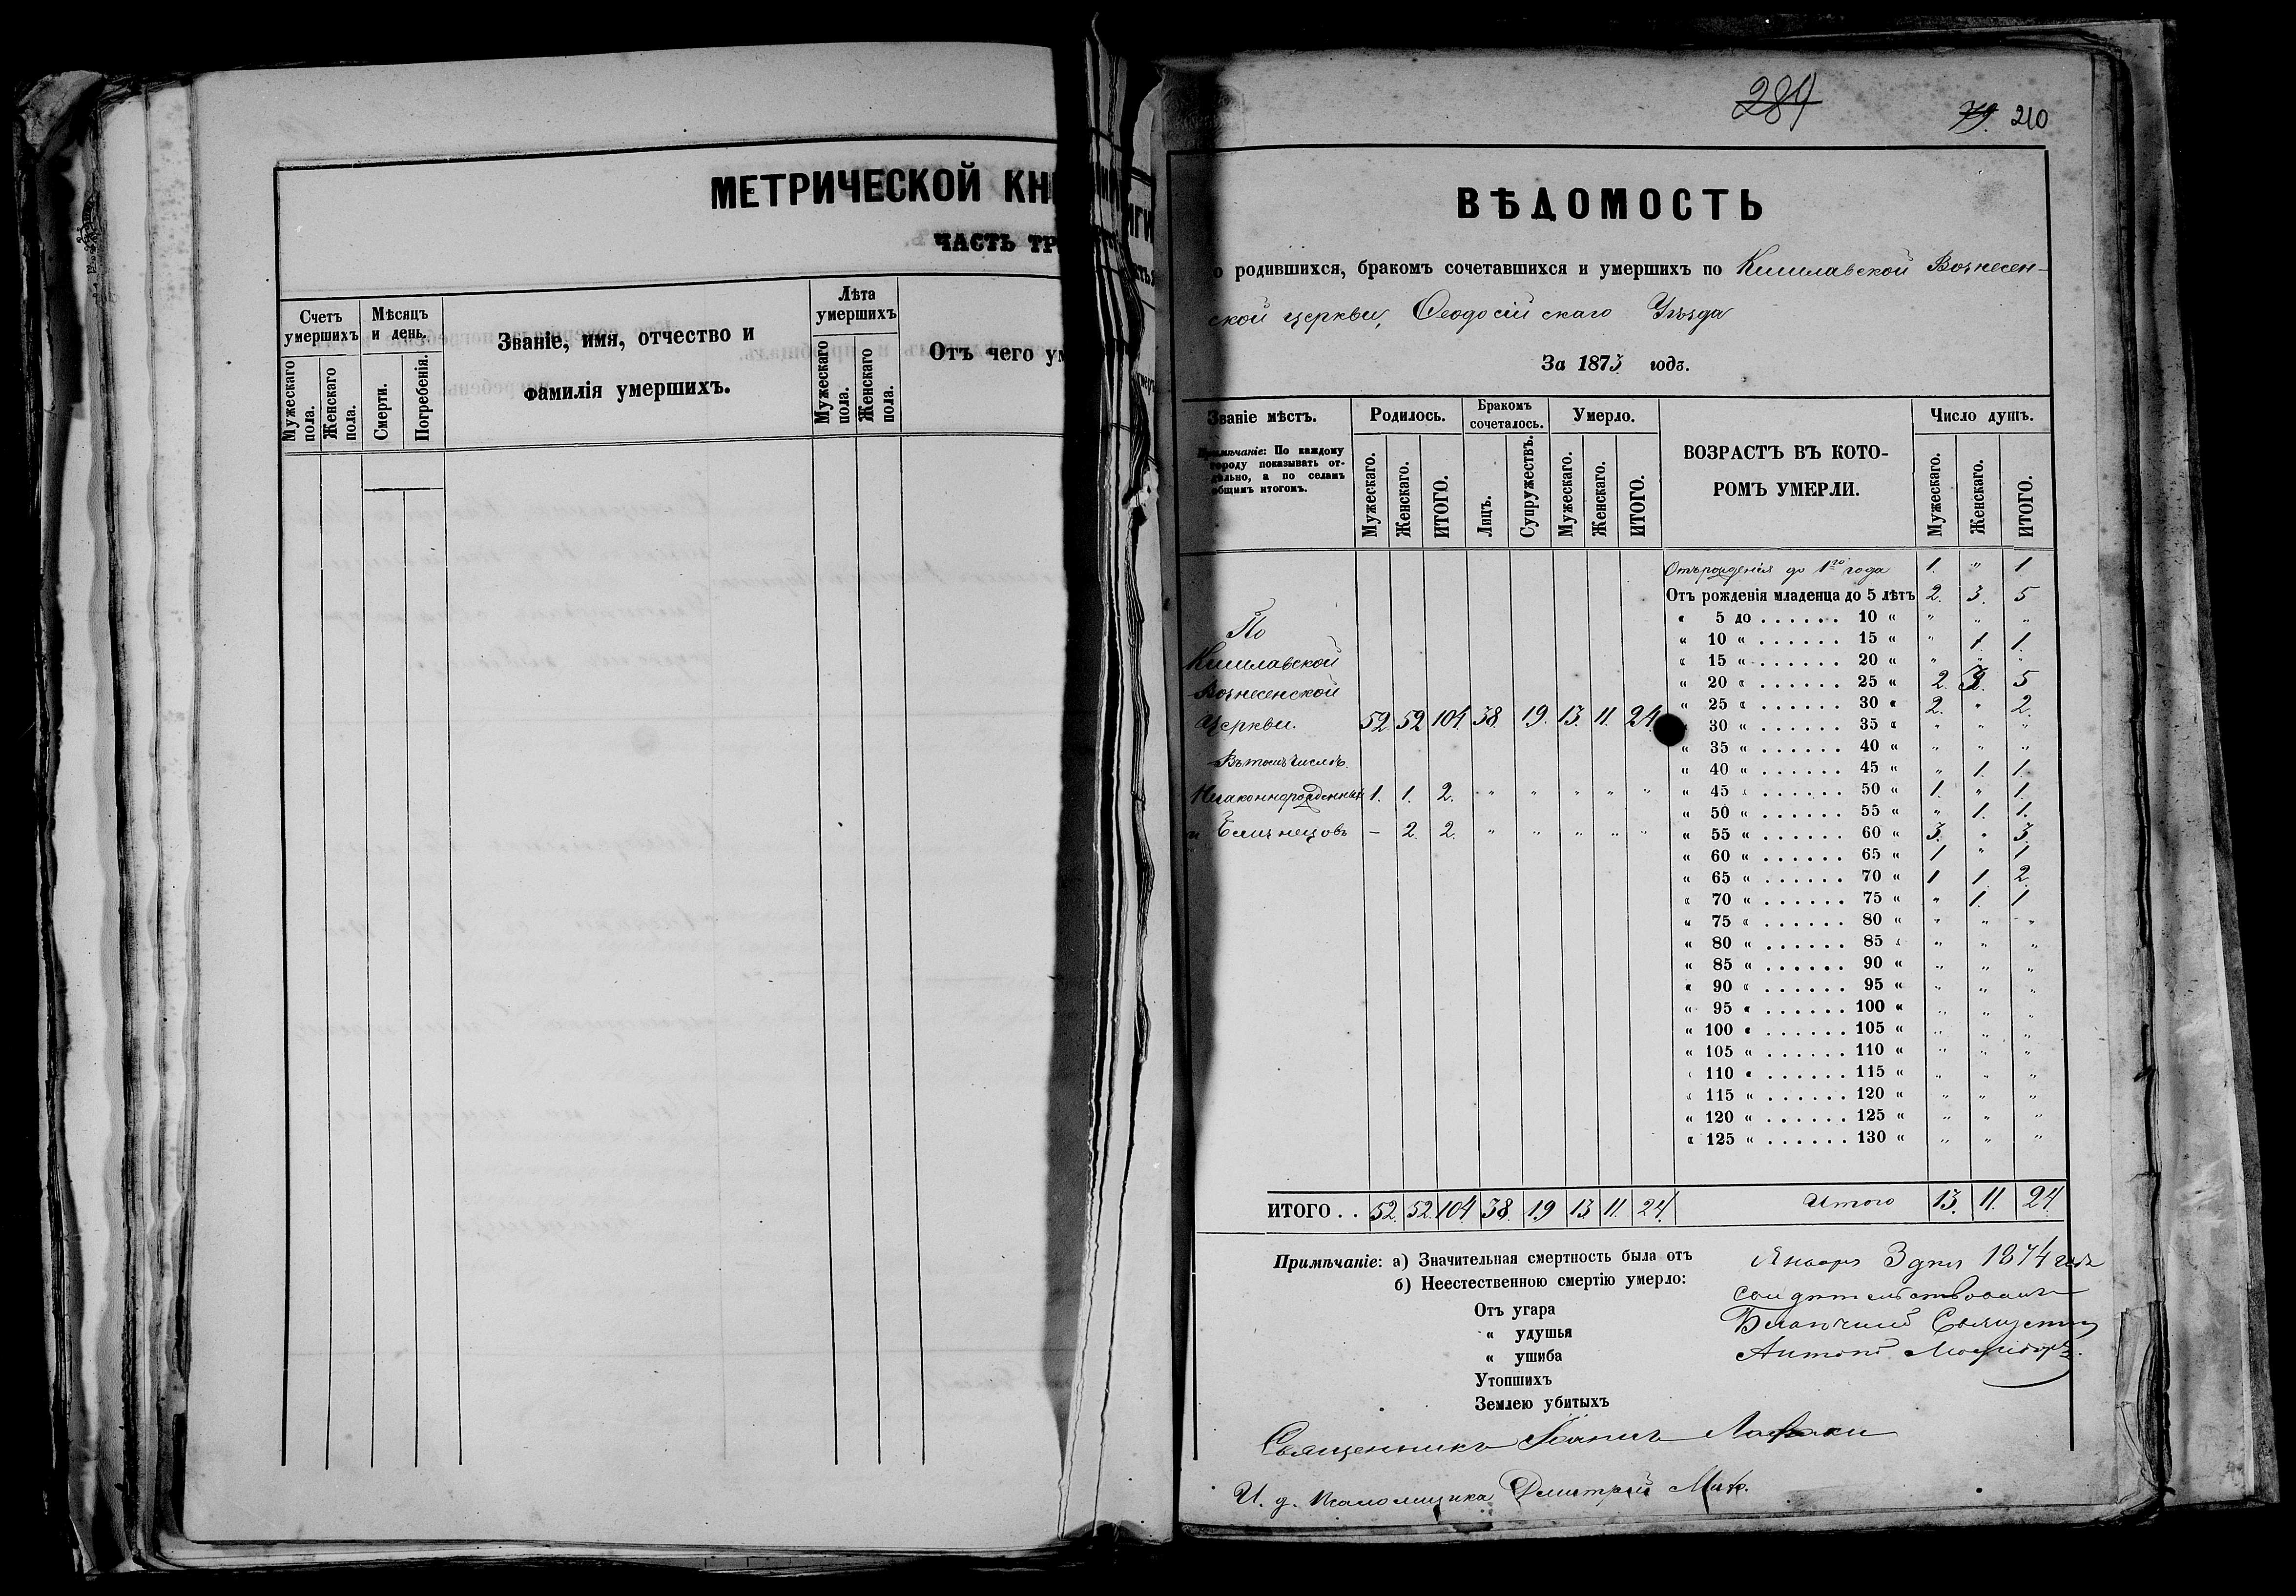 МЕТРИЧЕСКОЙ КН
ЧАСТЬ ТР
Счетъ умершихъ
Мѣсяцъ и день.
Званіе, имя, отчество и
фамилія умершихъ.
Лѣта умершихъ
Отъ чего ум
Мужескаго пола.
Женскаго пола.
Смерти.
Погребенія.
Мужескаго пола.
Женскаго пола.
284
79. 210
ВѢДОМОСТЬ
о родившихся, бракомъ сочетавшихся и умершихъ по Кишлавской Вознесен-
ской церкви, Ѳеодосійскаго Уѣзда
За 1873 годъ.
Званіе мѣстъ.
Примѣчаніе: По каждому
городу показывать от-
дѣльно, а по селамъ
общимъ итогомъ.
Родилось.
Бракомъ сочеталось.
Умерло.
ВОЗРАСТЪ ВЪ КОТО-
РОМЪ УМЕРЛИ.
Число душъ.
Мужескаго. Женскаго. ИТОГО. Лицъ. Супружествъ. Мужескаго. Женскаго. ИТОГО. Мужескаго. Женскаго. ИТОГО.
Отъ рожденія до 1го года 1. " 1
Отъ рожденія младенца до 5 лѣтъ 2. 3. 5
" 5 до . . . . . . 10 " " " "
" 10 " . . . . . . 15 " " 1. 1.
" 15 " . . . . . . 20 " " " "
" 20 " . . . . . . 25 " 2. 3. 5
" 25 " . . . . . . 30 " 2. " 2.
" 30 " . . . . . . 35 " " " "
" 35 " . . . . . . 40 " " " "
" 40 " . . . . . . 45 " " 1. 1.
" 45 " . . . . . . 50 " 1. " 1.
" 50 " . . . . . . 55 " " 1. 1.
" 55 " . . . . . . 60 " 3. " 3.
" 60 " . . . . . . 65 " 1 " 1
" 65 " . . . . . . 70 " 1 1 2.
" 70 " . . . . . . 75 " " 1. 1
" 75 " . . . . . . 80 " " " "
" 80 " . . . . . . 85 " " " "
" 85 " . . . . . . 90 " " " "
" 90 " . . . . . . 95 " " " "
" 95 " . . . . . . 100 " " " "
" 100 " . . . . . . 105 " " " "
" 105 " . . . . . . 110 " " " "
" 110 " . . . . . . 115 " " " "
" 115 " . . . . . . 120 " " " "
" 120 " . . . . . . 125 " " " "
" 125 " . . . . . . 130 " " " "
По
Кишлавской
Вознесенской
Церкви. 52. 52 104. 38. 19. 13. 11. 24.
Въ томъ числѣ
Незаконнорожденныхъ 1. 1. 2. " " " " "
и Близнецовъ – 2. 2. " " " " "
ИТОГО . . 52. 52. 104 38. 19 13 11. 24. Итого 13. 11. 24.
Примѣчаніе: а) Значительная смертность была отъ
б) Неестественною смертію умерло:
Отъ угара
" удушья
" ушиба
Утопшихъ
Землею убитыхъ
Января 3 дня 1874 года
свидѣтельствовалъ
Благочинный Священникъ
Антоній
Священникъ Іоаннъ
И. д. Псаломщика Дмитрій